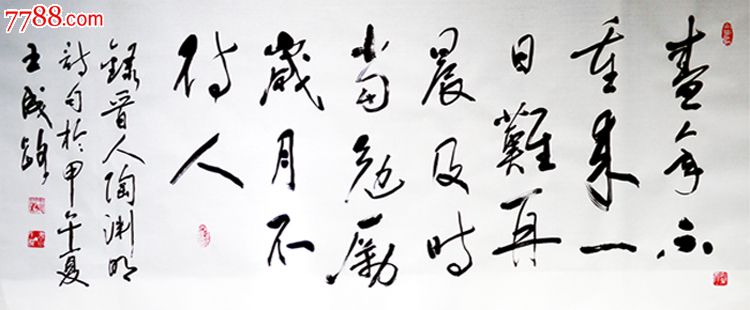 7788.com
盛年不
重来一
日難再
晨及时
當勉励
歲月不
待人
録晋人陶渊明
詩句於甲午夏
王成